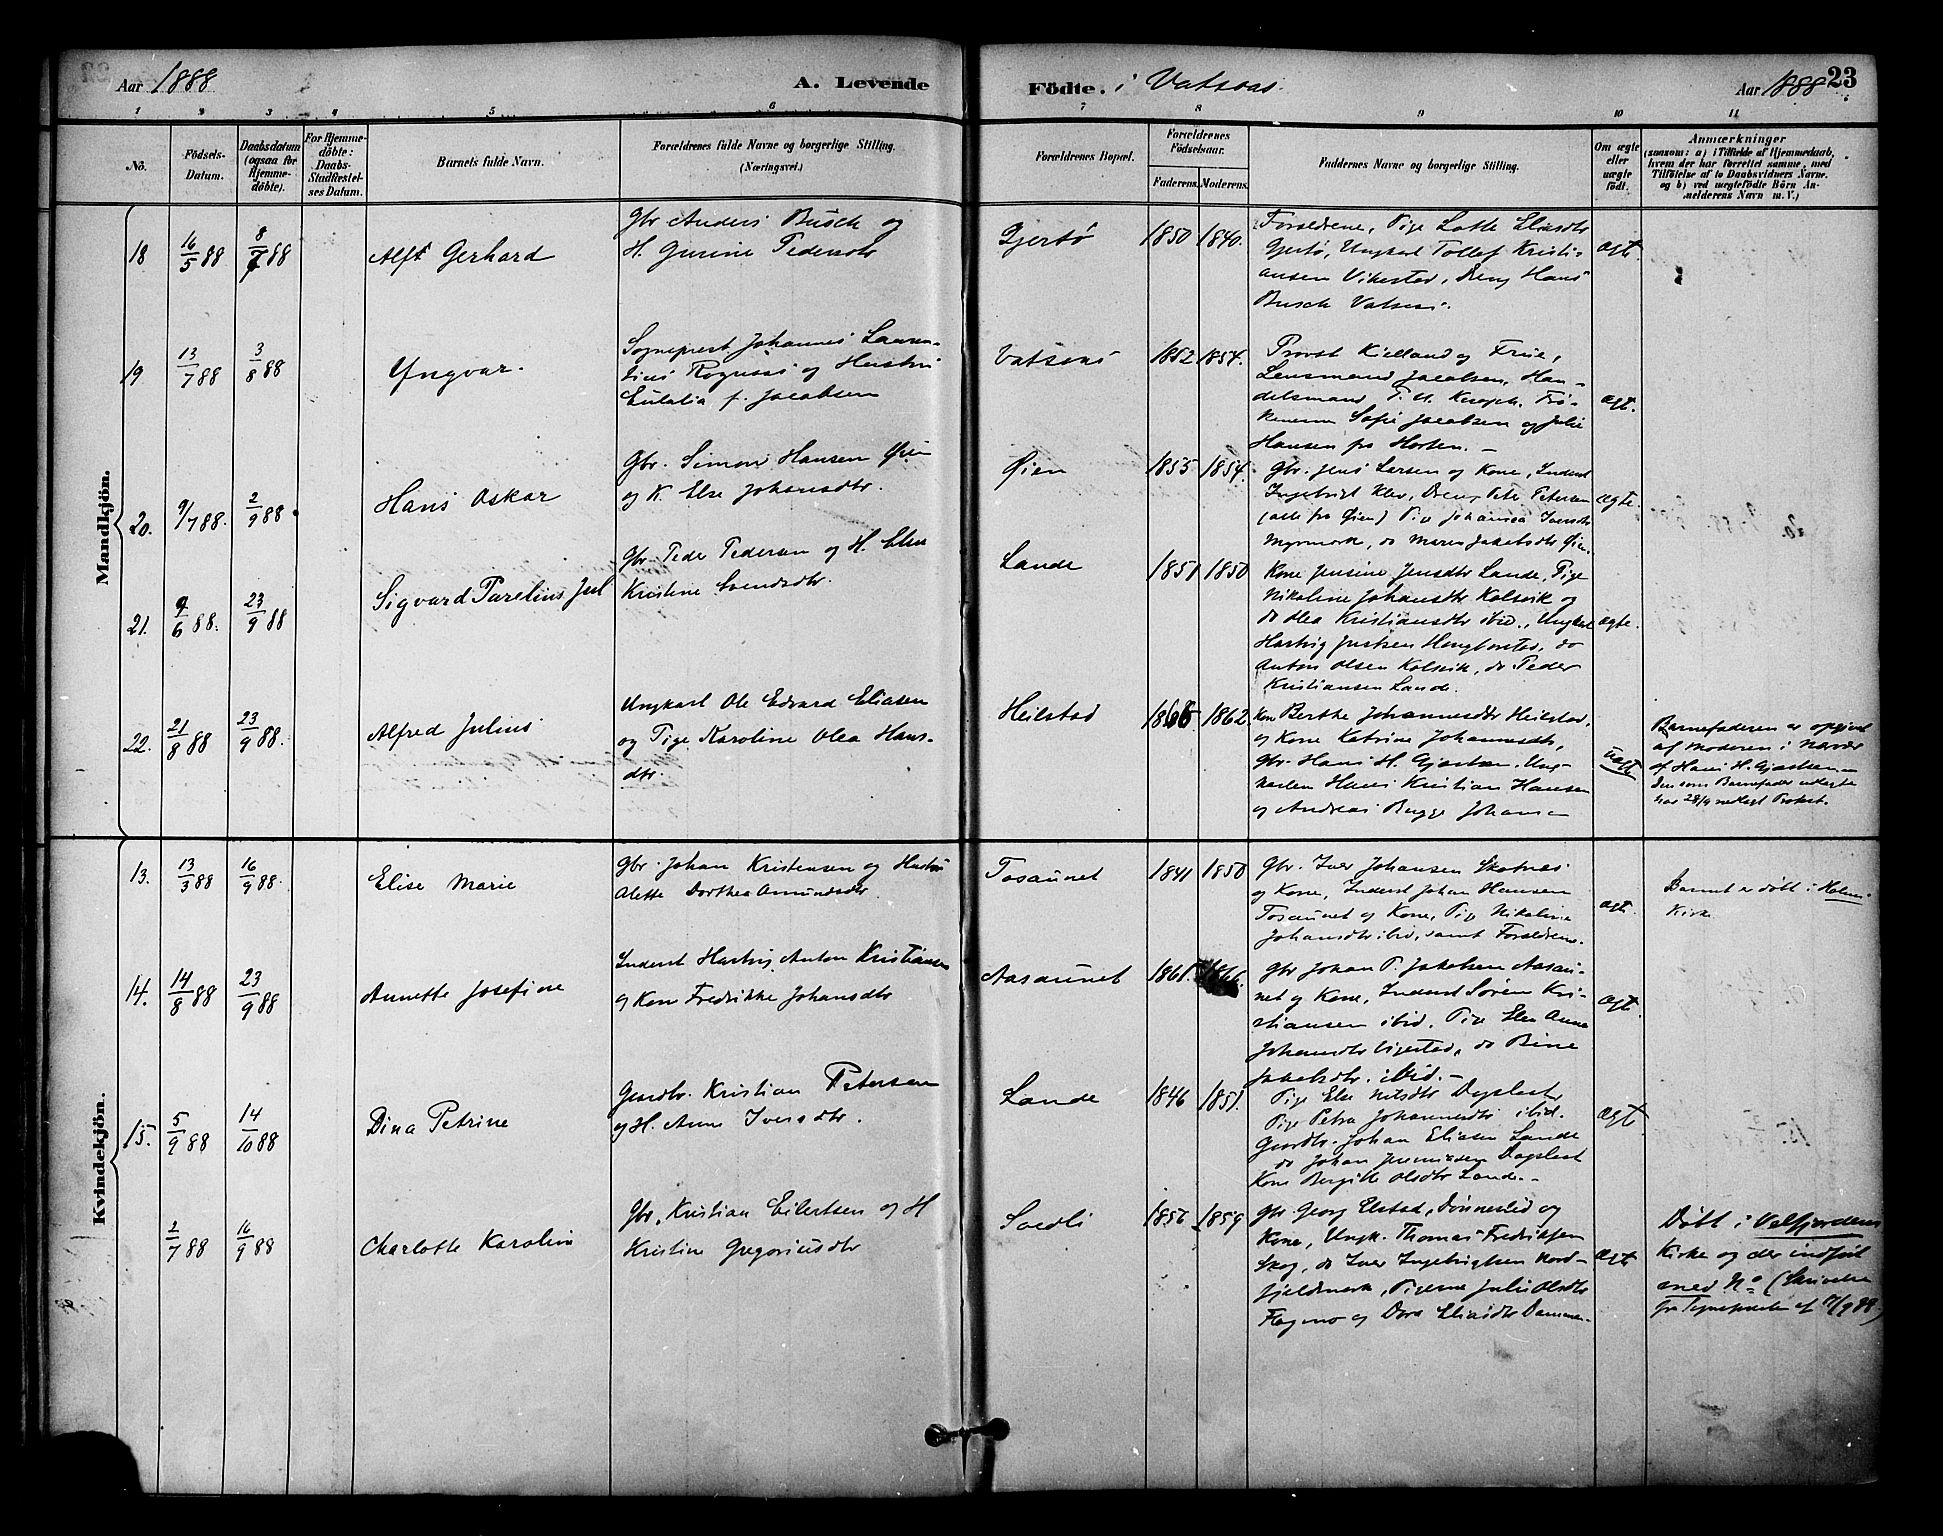 Aar 1888
A. Levende
Födte. i Vatsaas.
Aar 1888
23
1 2 3 4 5 6
7 8 9 10 11
No.
Födsels-
Datum.
Daabsdatum
(ogsaa for
Hjemme-
döbte).
For Hjemme-
döbte:
Daabs-
Stadfæstel-
ses Datum.
Barnets fulde Navn.
Forældrenes fulde Navne og borgerlige Stilling.
(Næringsvei.)
Forældrenes Bopæl.
Forældrenes
Födselsaar.
Faderens.
Moderens.
Faddernes Navne og borgerlige Stilling.
Om ægte
eller
uægte
födt.
Anmærkninger
(saasom: a) i Tilfælde af Hjemmedaab,
hvem der har forrettet samme, med
Tilföielse af to Daabsvidners Navne,
og b) ved uægtefödte Börn An-
melderens Navn m. V.)
Mandkjön.
18
16/5 88
8/7 88
Alf Gerhard
Gbr Anders Busch og
H. Gurine Pedersdtr
Gjertö
1850
1840.
Forældrene, Pige Lotte Eliasdtr
Gjertö, Ungkarl Tollef Kristi-
ansen Vikestad, Dreng Hans
Busch Vatsaas.
ægte.
19
13/7 88
3/8 88
Yngvar.
Sogneprest Johannes Lauren-
tius Rognaas og Hustru
Eulalia f. Jacobsen
Vatsaas
1852
1854.
Provst Kielland og Frue,
Lensmand Jacobsen, Han-
delsmand
Frö-
kenerne Sofie Jacobsen og Julie
Hansen fra Horten. -
ægt.
20.
9/7 88.
2/9 88
Hans Oskar
Gbr. Simon Hansen Öien
og K. Else Johansdtr.
Öien
1855
1854.
Gbr. Jens Larsen og Kone, Inderst
Ingebrigt Klev, Dreng Peter Petersen
(alle fra Öien) Pige Johanna Iversdtr
Myrmark, do Maren Jakobsdtr Öien.
ægte.
21.
9/6 88.
23/9 88
Sigvard Parelius Juul
Gbr Peder Pedersen og H. Elen
Kristine Svendsdtr.
Lande
1851
1850
Kone Jensine Jensdtr Lande, Pige
Nikoline Johansdtr Kolsvik og
do Olea Kristiansdtr ibid., Ungkarl
Hartvig Justsen Hongborstad, do
Anton Olsen Kolsvik, do Peder
Kristiansen Lande.
ægte.
22.
21/8 88
23/9 88.
Alfred Julius
Ungkarl Ole Edvard Eliasen
og Pige Karoline Olea Hans-
dtr.
Heilstad
1865
1862.
Kone Berthe Johannesdtr Heilstad,
og Kone Katrine Johannesdtr,
Gbr. Hans H. Ung-
karlen Hans Kristian Hansen
og Andreas Bugge Johansen
uægte
Barnefaderen er opgivet
af Moderen i Nærvær
af Hans H.
Den som Barnefader udlagte
har 28/9 nedlagt Protest.
Kvindekjön.
13.
13/3 88
16/9 88.
Elise Marie
Gbr. Johan Kristensen og Hustru
Alette Dorthea Amundsdtr
Tosaunet
1841
1850
Gbr. Iver Johansen Skotnes
og Kone, Inderst Johan Hansen
Tosaunet og Kone, Pige Nikoline
Johansdtr ibid, samt Forældrene.
ægte.
Barnet er döbt i Holms
Kirke
14.
14/8 88
23/9 88
Annette Josefine
Inderst Hartvig Anton Kristiansen
og Kone Fredrikke Johansdtr
Aasaunet
1861.
1866.
Gbr Johan P. Jakobsen Aasau-
net og Kone, Inderst Sören Kri-
stiansen ibid. Pige Elen Anna
Johansdtr do Bine
Jakobsdtr. ibid. -
ægt.
15.
5/9 88
14/10 88
Dina Petrine
Gaardbr. Kristian Petersen
og H. Anne Iversdtr.
Lande
1846
1851.
Pige Else Nilsdtr Dagslet
Pige Petra Johannesdtr ibid.
Gaardbr. Johan Eliasen Lande
do Johan Dagslet
Kone Bergitte Olsdtr Lande. -
ægt
2/7 88
16/9 88
Charlotte Karoline
Gbr. Kristian Eilertsen og H
Kristine Gregoriusdtr
Soedli
1856
1859
Gbr. Georg Elstad, og
Kone, Ungk. Thomas Fredriksen
Skog, do Iver Ingebrigtsen Nord-
fjeldmark, Pigerne Julie Olsdtr
og Dora Eliasdtr
ægt
Döbt i Velfjordens
Kirke og der indfört
med No (Skrivelse
fra Sognepresten af 17/9 88.)